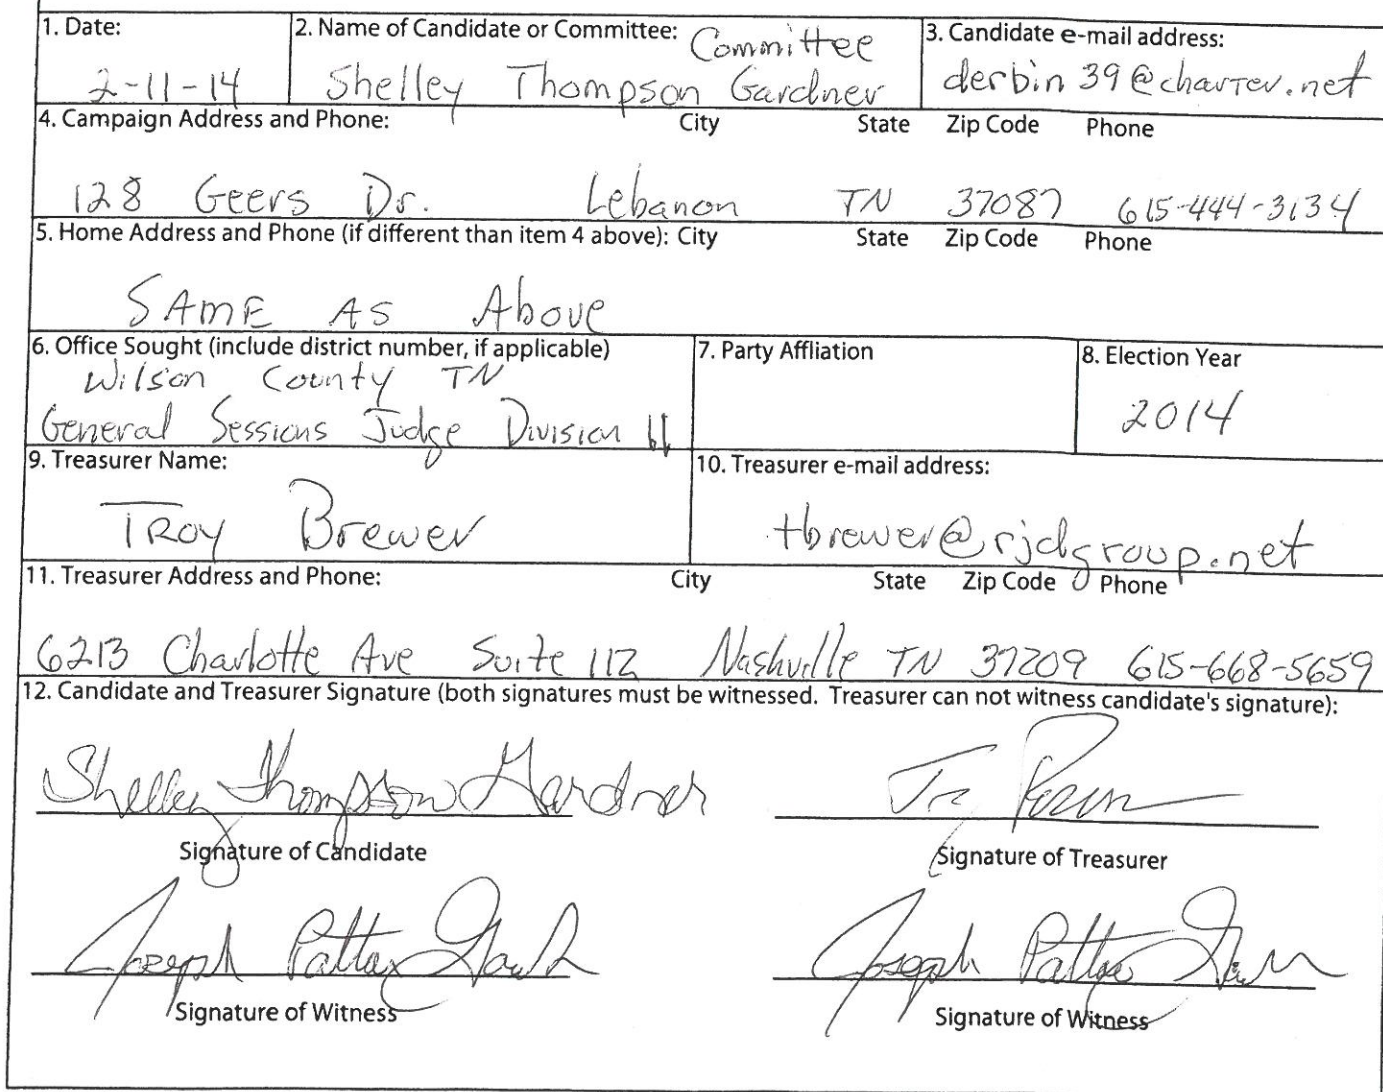 1. Date: 2. Name of Candidate or Committee: Committee 3. Candidate e-mail address:
2-11-14 Shelley Thompson Gardner derbin39@charter.net
4. Campaign Address and Phone: City State Zip Code Phone
128 Geers Dr. Lebanon TN 37087 615-444-3134
5. Home Address and Phone (if different than item 4 above): City State Zip Code Phone
SAME AS Above
6. Office Sought (include district number, if applicable) 7. Party Affliation 8. Election Year
Wilson County TN
General Sessions Judge Division II 2014
9. Treasurer Name: 10. Treasurer e-mail address:
TROY Brewer tbrewer@rjdgroup.net
11. Treasurer Address and Phone: City State Zip Code Phone
6213 Charlotte Ave Suite 112 Nashville TN 37209 615-668-5659
12. Candidate and Treasurer Signature (both signatures must be witnessed. Treasurer can not witness candidate's signature):
Shelley Thompson Gardner
Signature of Candidate Signature of Treasurer
Joseph Joseph
Signature of Witness Signature of Witness